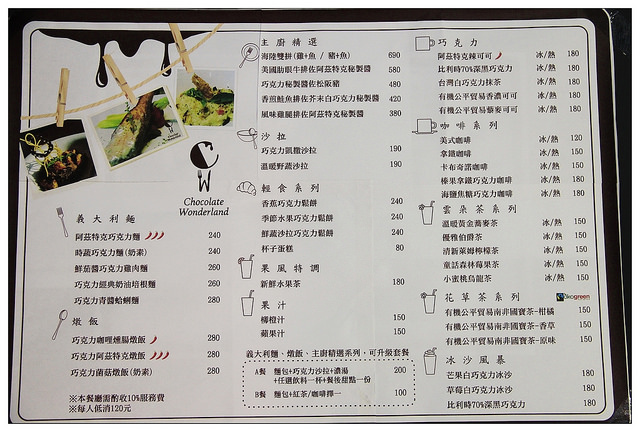 Chocolate
Wonderland
義大利麵
阿茲特克巧克力麵 240
時蔬巧克力麵(奶素) 240
鮮茄醬巧克力雞肉麵 260
巧克力經典奶油培根麵 260
巧克力青醬蛤蜊麵 280
燉飯
巧克力咖哩燻腸燉飯 280
巧克力阿茲特克燉飯 280
巧克力菌菇燉飯(奶素) 280
※本餐廳需酌收10%服務費
※每人低消120元
主廚精選
海陸雙拼(雞+魚 / 豬+魚) 690
美國肋眼牛排佐阿茲特克秘製醬 580
巧克力秘製醬佐松阪豬 480
香煎鮭魚排佐芥末白巧克力秘製醬 420
風味雞腿排佐阿茲特克秘製醬 380
沙拉
巧克力凱撒沙拉 190
溫暖野蔬沙拉 190
輕食系列
香蕉巧克力鬆餅 240
季節水果巧克力鬆餅 240
鮮蔬沙拉巧克力鬆餅 240
杯子蛋糕 80
果風特調
新鮮水果茶 180
果汁
柳橙汁 150
蘋果汁 150
義大利麵、燉飯、主廚精選系列，可升級套餐
A餐 麵包+巧克力沙拉+濃湯 200
+任選飲料一杯+餐後甜點一份
B餐 麵包+紅茶/咖啡擇一 100
巧克力
阿茲特克辣可可 冰/熱 180
比利時70%深黑巧克力 冰/熱 180
台灣白巧克力抹茶 冰/熱 180
有機公平貿易香濃可可 冰/熱 180
有機公平貿易藜麥可可 冰/熱 180
咖啡系列
美式咖啡 冰/熱 120
拿鐵咖啡 冰/熱 150
卡布奇諾咖啡 冰/熱 150
榛果拿鐵巧克力咖啡 冰/熱 180
海鹽焦糖巧克力咖啡 冰/熱 180
雲朵茶系列
溫暖黃金蕎麥茶 冰/熱 150
優雅伯爵茶 冰/熱 150
清新萊姆檸檬茶 冰/熱 150
童話森林莓果茶 冰/熱 150
小蜜桃烏龍茶 冰/熱 150
花草茶系列 Okogreen
有機公平貿易南非國寶茶-柑橘 冰/熱 150
有機公平貿易南非國寶茶-香草 冰/熱 150
有機公平貿易南非國寶茶-原味 冰/熱 150
冰沙風暴
芒果白巧克力冰沙 180
草莓白巧克力冰沙 180
比利時70%深黑巧克力 180